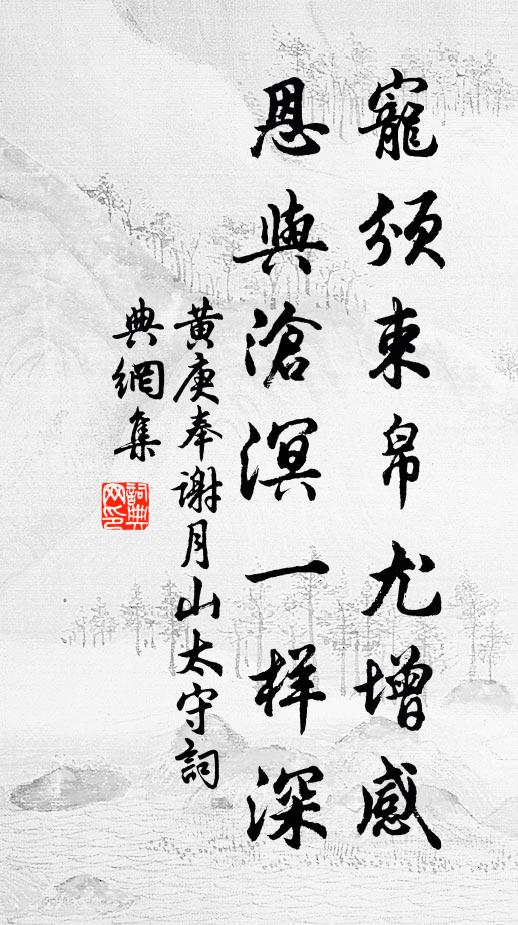 寵頒束帛尤增感
恩與滄溟一样深
黃庚奉谢月山太守詞
典網集
詞典
网印